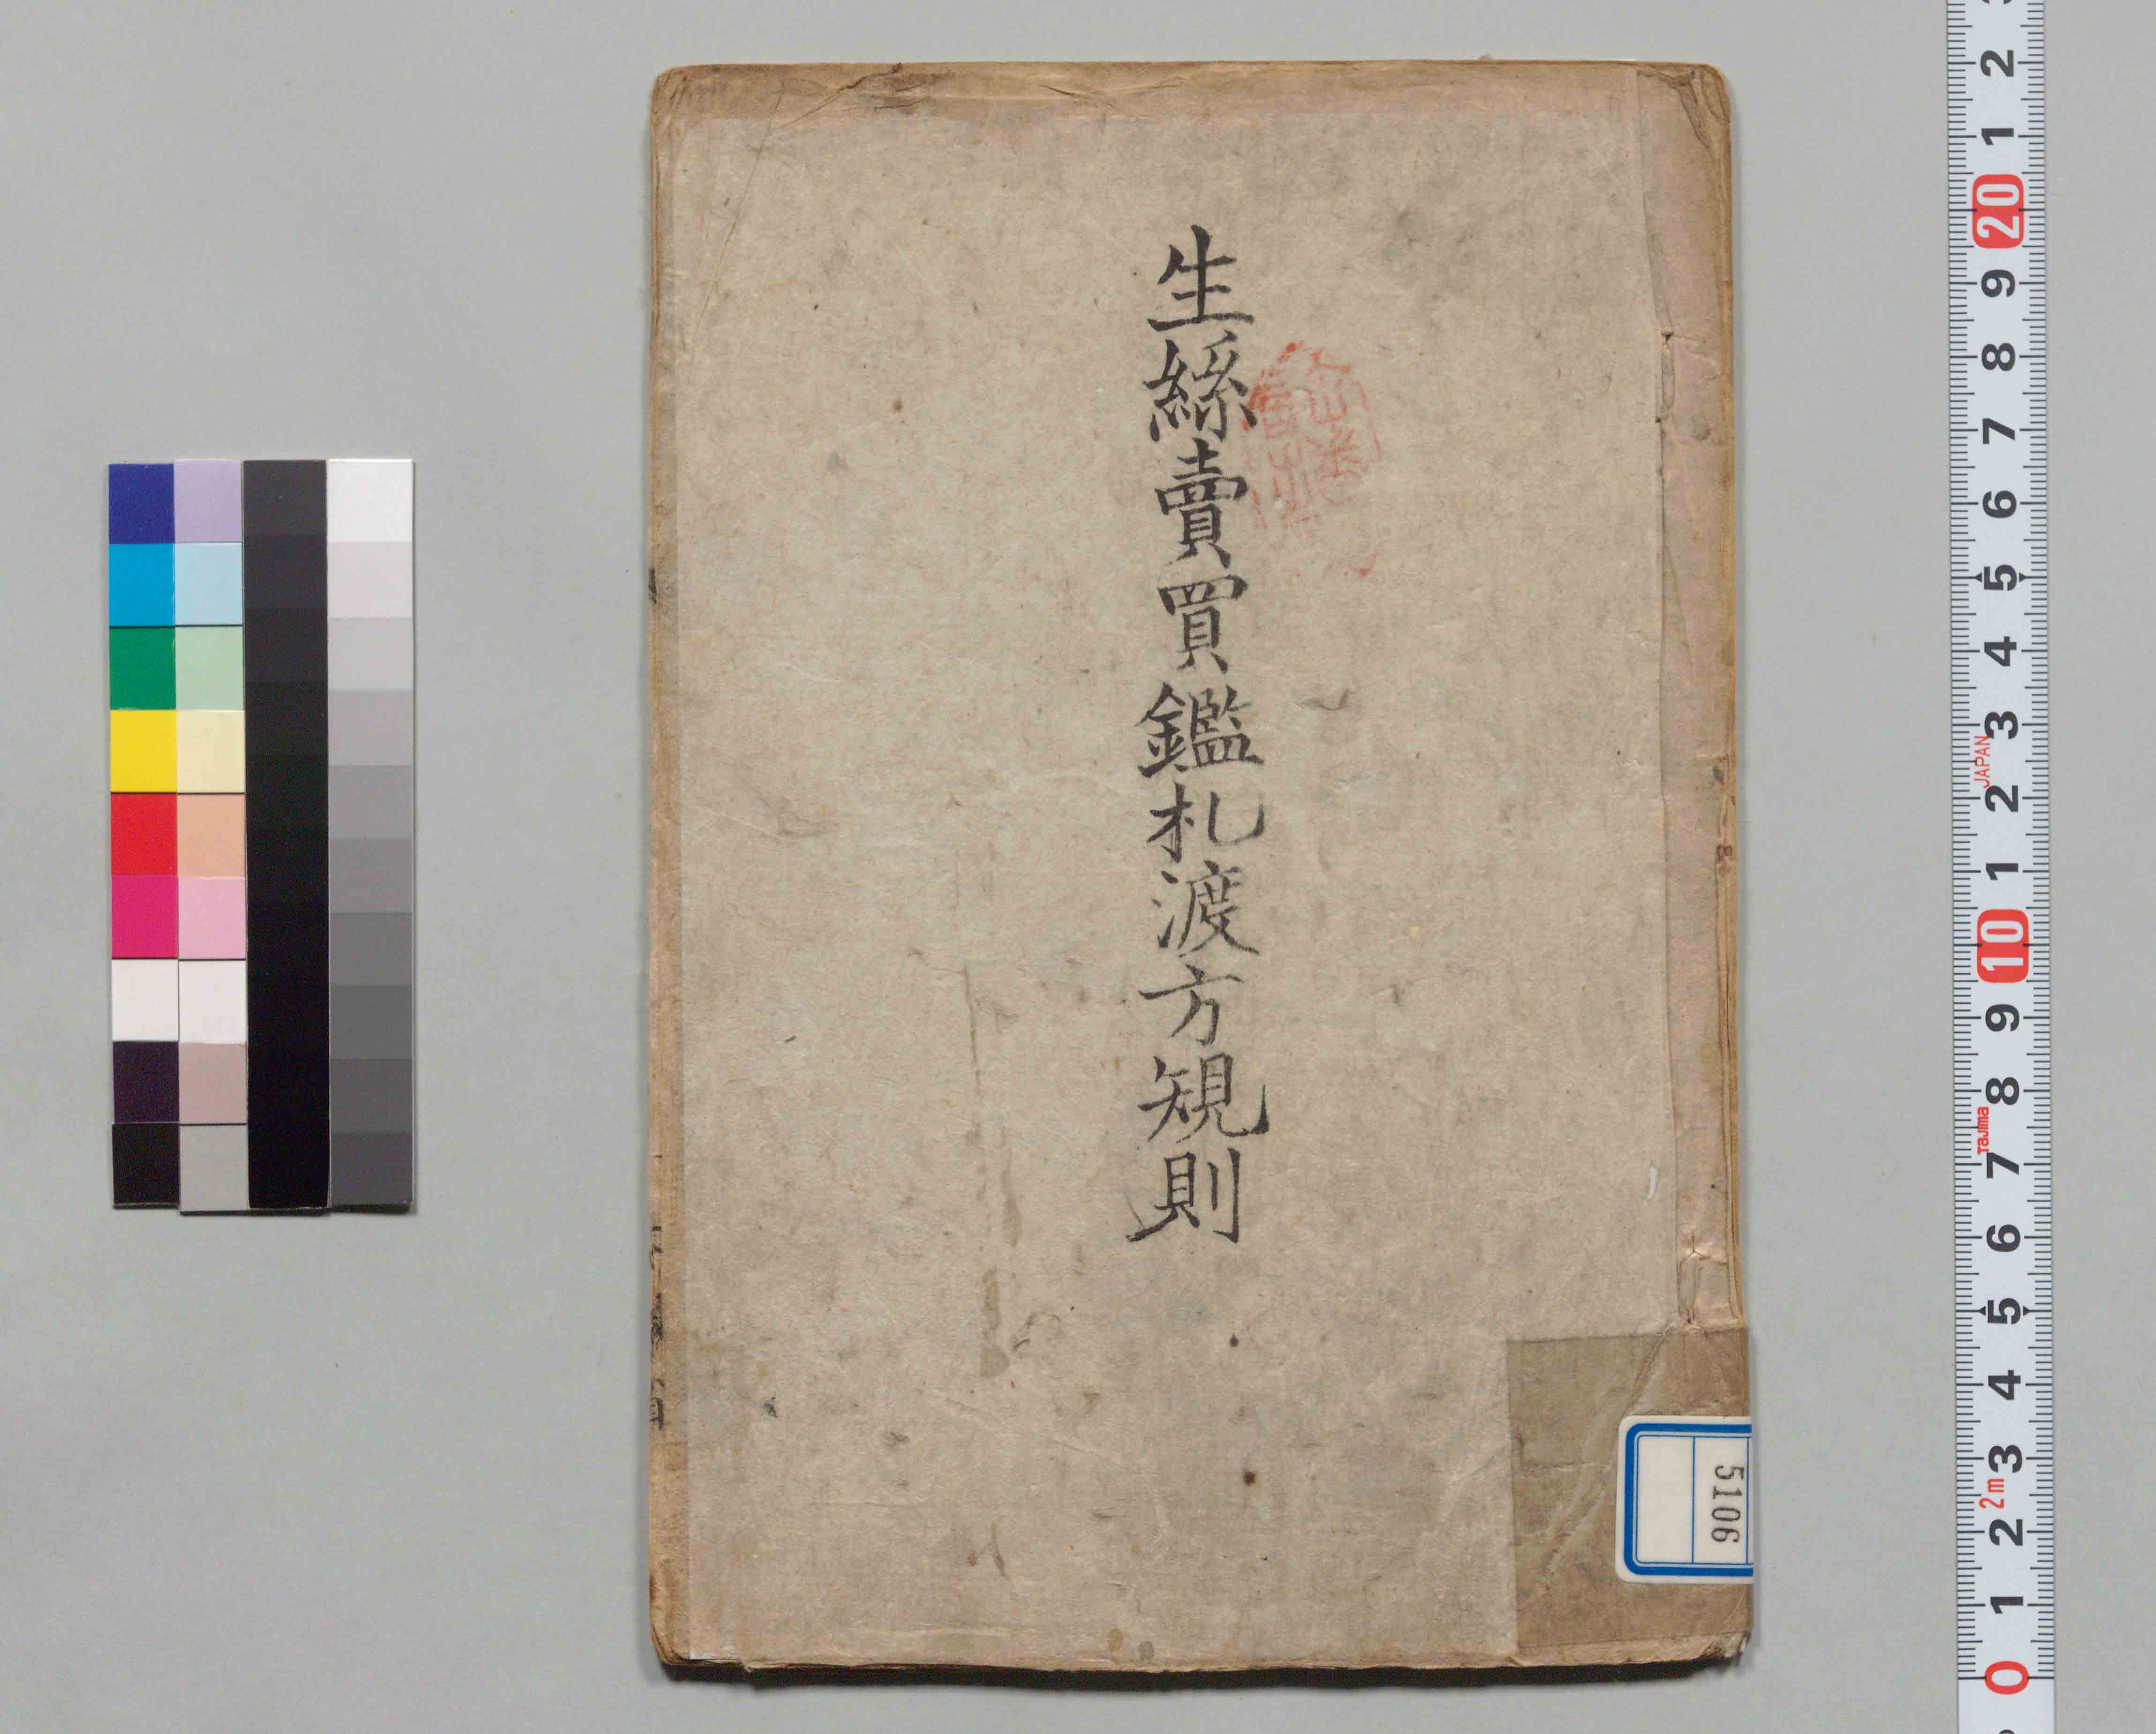 生絲賣買鑑札渡方規則
5106
2
1
20
9
8
7
6
5
4
3
JAPAN
2
1
10
9
8
Tajima
7
6
5
4
3
2m
2
1
0